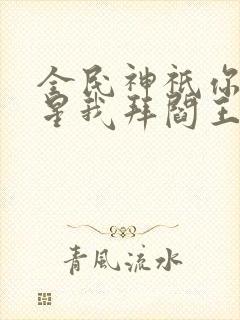 全民神祇你
星我拜阎王
青風流水